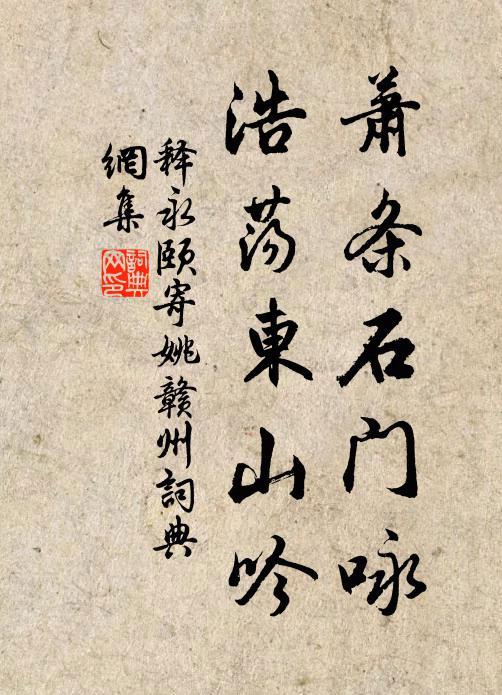 蕭条石门咏
浩荡東山吟
释永颐寄姚赣州詞典
網集
詞典
网印